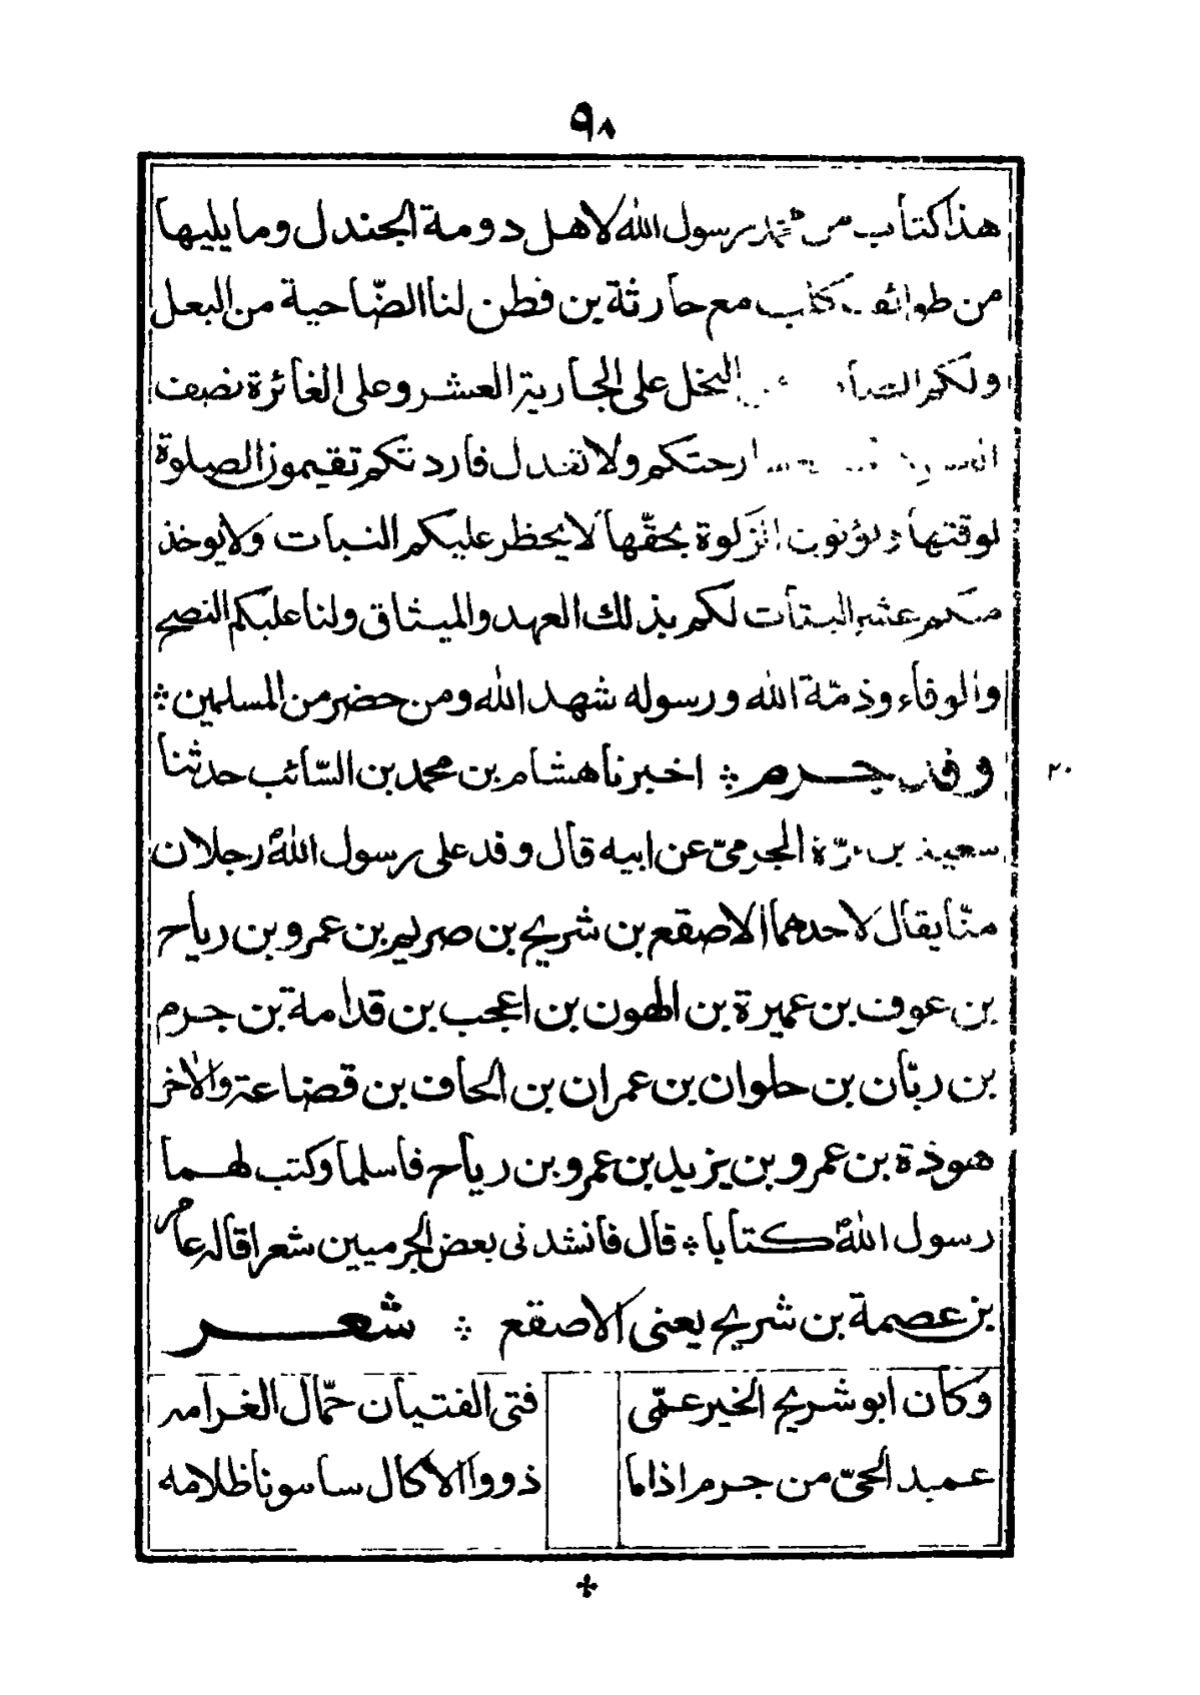 ٩٨
هذا كتاب من محمد رسول الله لاهل دومة الجندل وما يليها
من طوائف كلب مع حارثة بن قطن لنا الضّاحية من البعل
ولكم النخل على الجارية العشر وعلى الغائرة نصف
ارحتكم ولا تعدل فاردتكم تقيمون الصلوة
لوقتها وتؤتون الزكوة بحقّها لا يحظر عليكم النبات ولا يوخذ
منكم عشر البتات لكم بذلك العهد والميثاق ولنا عليكم النصح
والوفاء وذمّة الله ورسوله شهد الله ومن حضر من المسلمين ۞
وفد جرم ۞ اخبرنا هشام بن محمد بن السّائب حدثنا
٢٠
بن مرّة الجرميّ عن ابيه قال وفد على رسول الله رجلان
منّا يقال لاحدهما الاصقع بن شريح بن صريم بن عمرو بن رياح
بن عوف بن عميرة بن الهون بن اعجب بن قدامة بن جرم
بن ربّان بن حلوان بن عمران بن الحاف بن قضاعة والآخر
هوذة بن عمرو بن يزيد بن عمرو بن رياح فاسلما وكتب لهما
رسول الله كتابا ۞ قال فانشدنى بعض الجرميين شعرا قاله عامر
بن عصمة بن شريح يعنى الاصقع ۞ شعر
وكان ابو شريح الخير عمّى فتى الفتيان حمّال الغرامه
عميد الحىّ من جرم اذا ما ذووا الآكال سامونا ظلامه